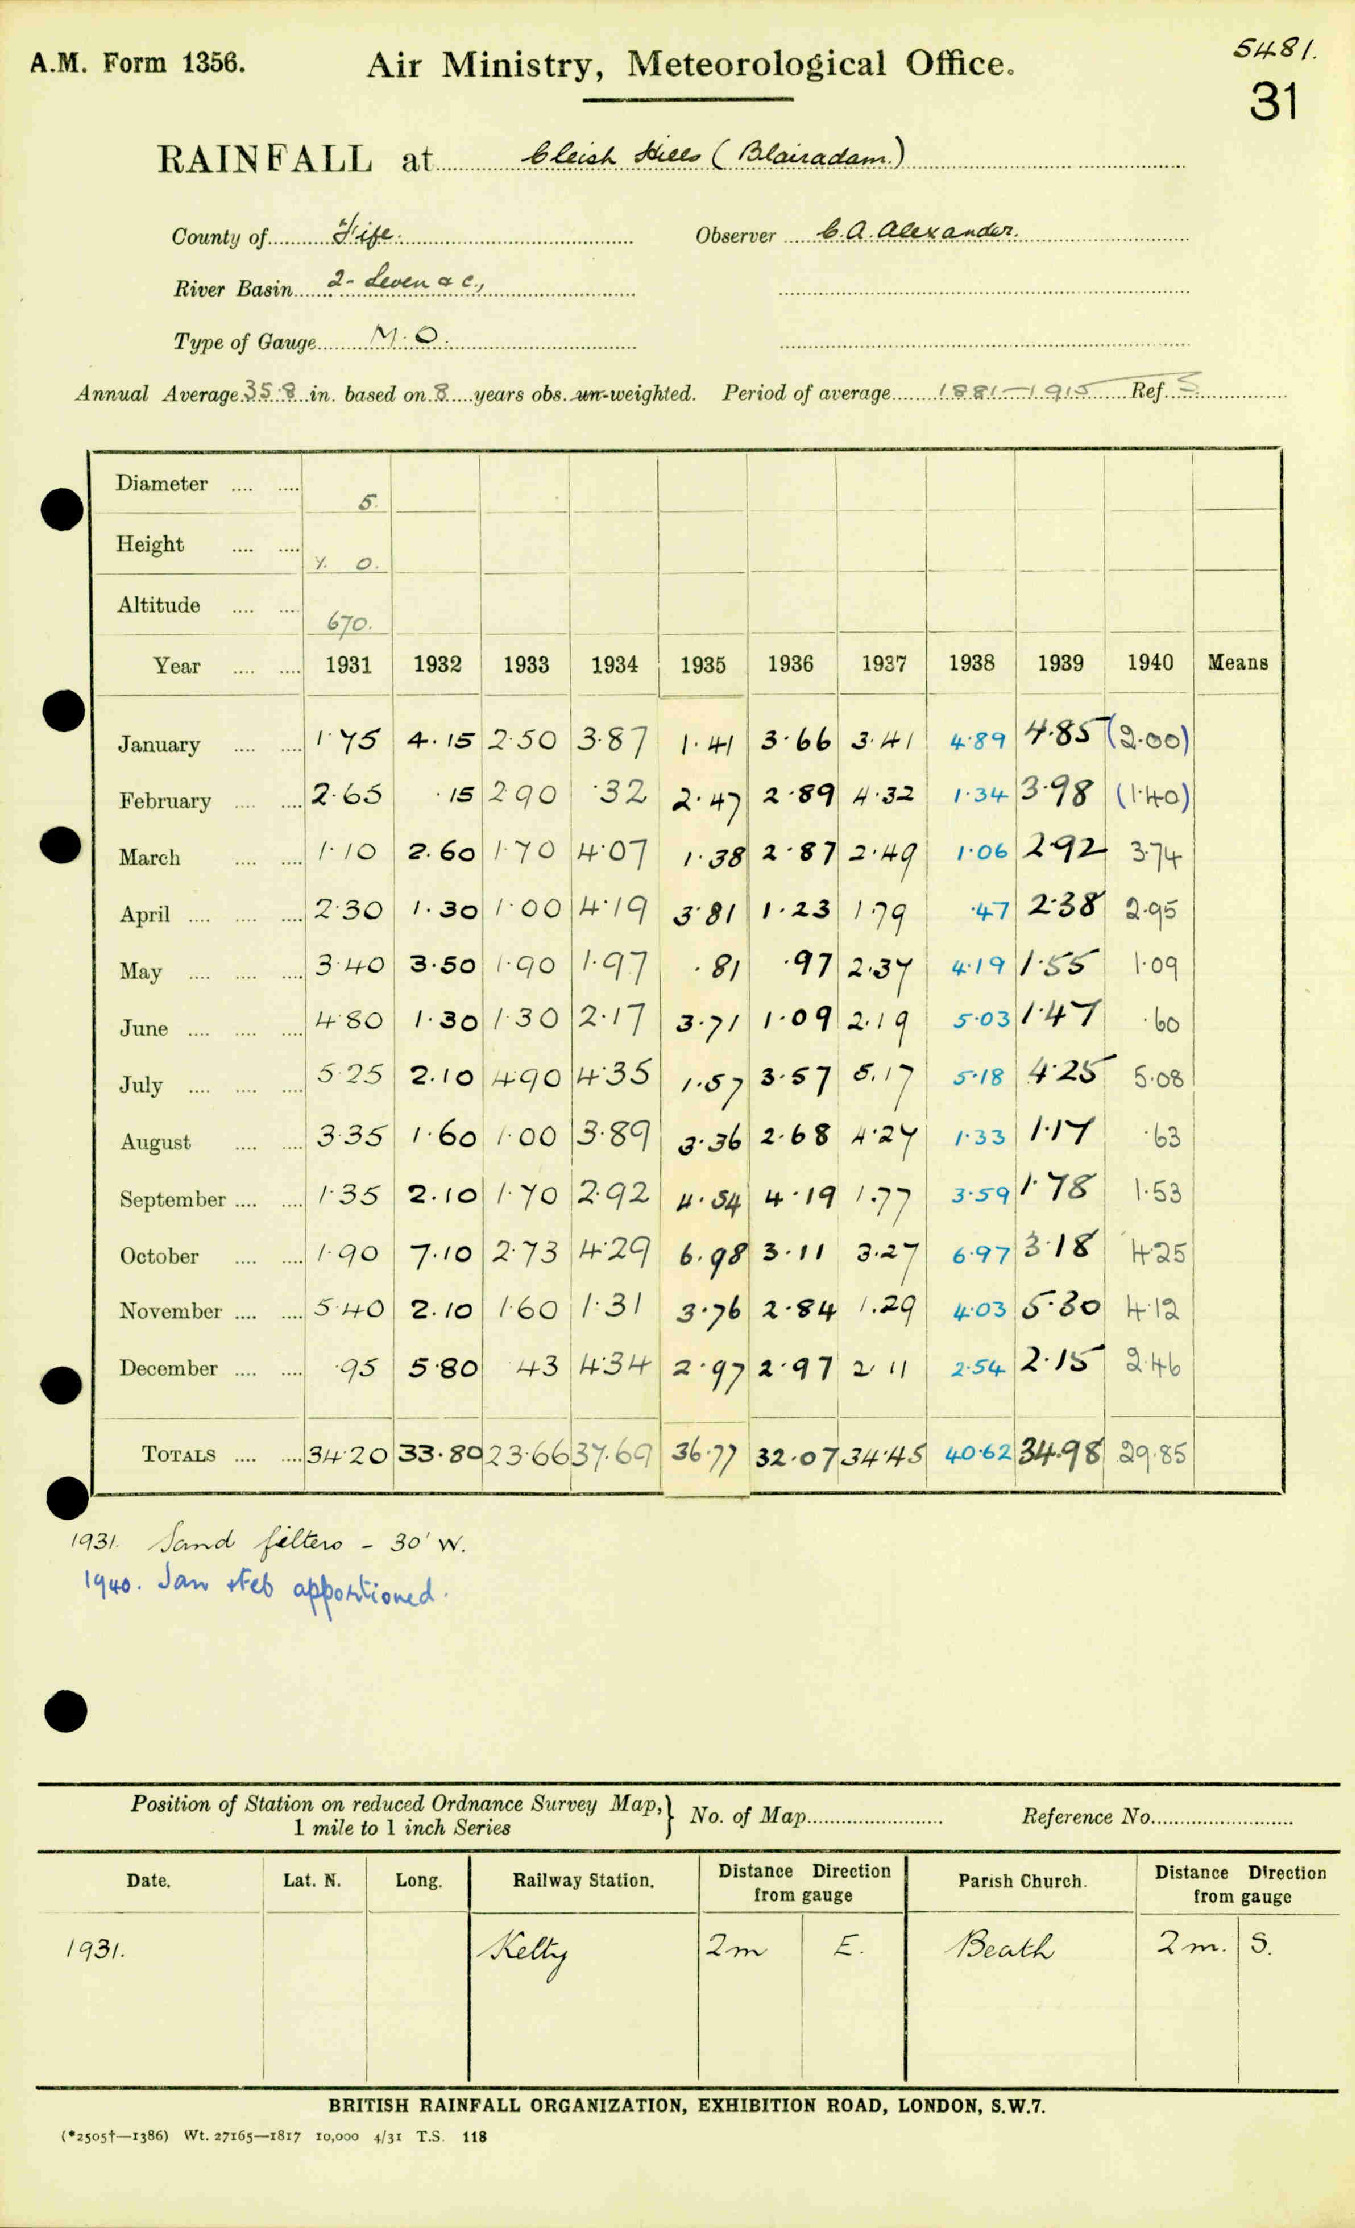 5481.
A.M. Form 1356. Air Ministry, Meteorological Office.
31
RAINFALL at Cleish Hills (Blairadam.)
County of Fife. Observer C.A. Alexander.
River Basin 2- Leven & c.,
Type of Gauge M.O.
Annual Average 35.8 in. based on 8 years obs. un-weighted. Period of average 1881-1915 Ref. S.
Diameter .... .... 5.
Height .... .... 0.
Altitude .... .... 670.
Year .... .... 1931 1932 1933 1934 1935 1936 1937 1938 1939 1940 Means
January .... .... 1.75 4.15 2.50 3.87 1.41 3.66 3.41 4.89 4.85 (2.00)
February .... .... 2.65 .15 2.90 .32 2.47 2.89 4.32 1.34 3.98 (1.40)
March .... .... 1.10 2.60 1.70 4.07 1.38 2.87 2.49 1.06 2.92 3.74
April .... .... .... 2.30 1.30 1.00 4.19 3.81 1.23 1.79 .47 2.38 2.95
May .... .... .... 3.40 3.50 1.90 1.97 .81 .97 2.37 4.19 1.55 1.09
June .... .... .... 4.80 1.30 1.30 2.17 3.71 1.09 2.19 5.03 1.47 .60
July .... .... .... 5.25 2.10 4.90 4.35 1.57 3.57 5.17 5.18 4.25 5.08
August .... .... 3.35 1.60 1.00 3.89 3.36 2.68 4.27 1.33 1.17 .63
September .... .... 1.35 2.10 1.70 2.92 4.54 4.19 1.77 3.59 1.78 1.53
October .... .... 1.90 7.10 2.73 4.29 6.98 3.11 3.27 6.97 3.18 4.25
November .... .... 5.40 2.10 1.60 1.31 3.76 2.84 1.29 4.03 5.30 4.12
December .... .... .95 5.80 43 4.34 2.97 2.97 2.11 2.54 2.15 2.46
TOTALS .... .... 34.20 33.80 23.66 37.69 36.77 32.07 34.45 40.62 34.98 29.85
1931. Sand filters - 30' W.
1940. Jan & Feb apportioned.
Position of Station on reduced Ordnance Survey Map,} No. of Map Reference No.
1 mile to 1 inch Series
Date. Lat. N. Long. Railway Station. Distance Direction from gauge Parish Church. Distance Direction from gauge
1931. Kelty 2m E. Beath 2m. S.
BRITISH RAINFALL ORGANIZATION, EXHIBITION ROAD, LONDON, S.W.7.
(*2505†—1386) Wt. 27165—1817 10,000 4/31 T.S. 118